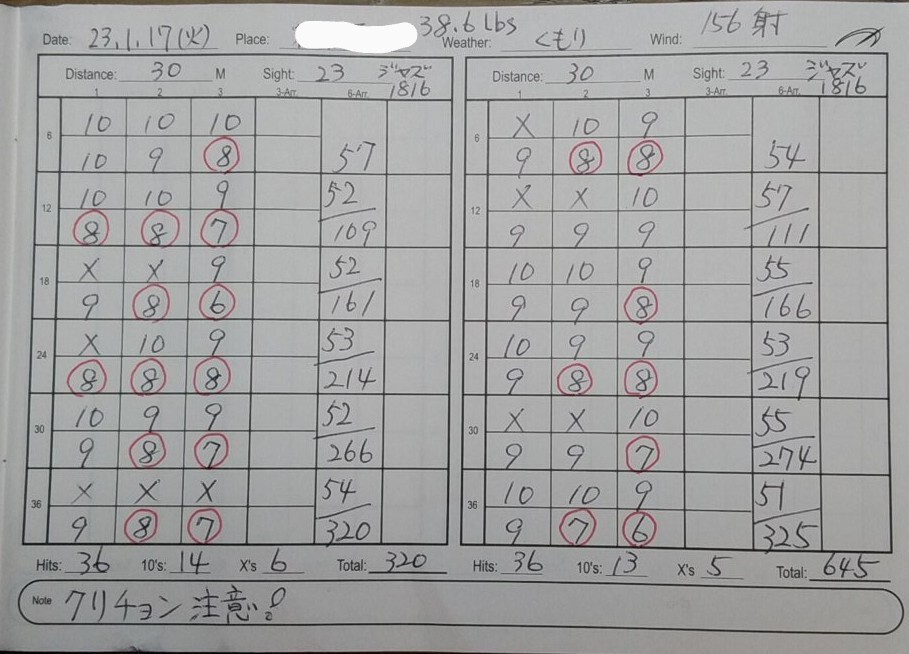 38.6 lbs
Date: 23.1.17(火) Place: Weather: くもり Wind: 156射
Distance: 30 M Sight: 23 ジャズ
1 2 3 3-Arr. 6-Arr. 1816
10 10 10
6
10 9 8 57
10 10 9 52
12
8 8 7 109
X X 9 52
18
9 8 6 161
X 10 9 53
24
8 8 8 214
10 9 9 52
30
9 8 7 266
X X X 54
36
9 8 7 320
Hits: 36 10's: 14 X's 6 Total: 320
Distance: 30 M Sight: 23 ジャズ
1 2 3 3-Arr. 6-Arr. 1816
X 10 9
6
9 8 8 54
X X 10 57
12
9 9 9 111
10 10 9 55
18
9 9 8 166
10 9 9 53
24
9 8 8 219
X X 10 55
30
9 9 7 274
10 10 9 51
36
9 7 6 325
Hits: 36 10's: 13 X's 5 Total: 645
Note クリチョン注意!